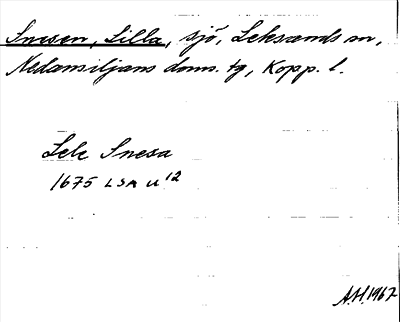 Snesen, Lilla, sjö, Leksands sn,
Nedansiljans doms. tg, Kopp. l.
Lele Snesa
1675 LSA U 12
A.H. 1967